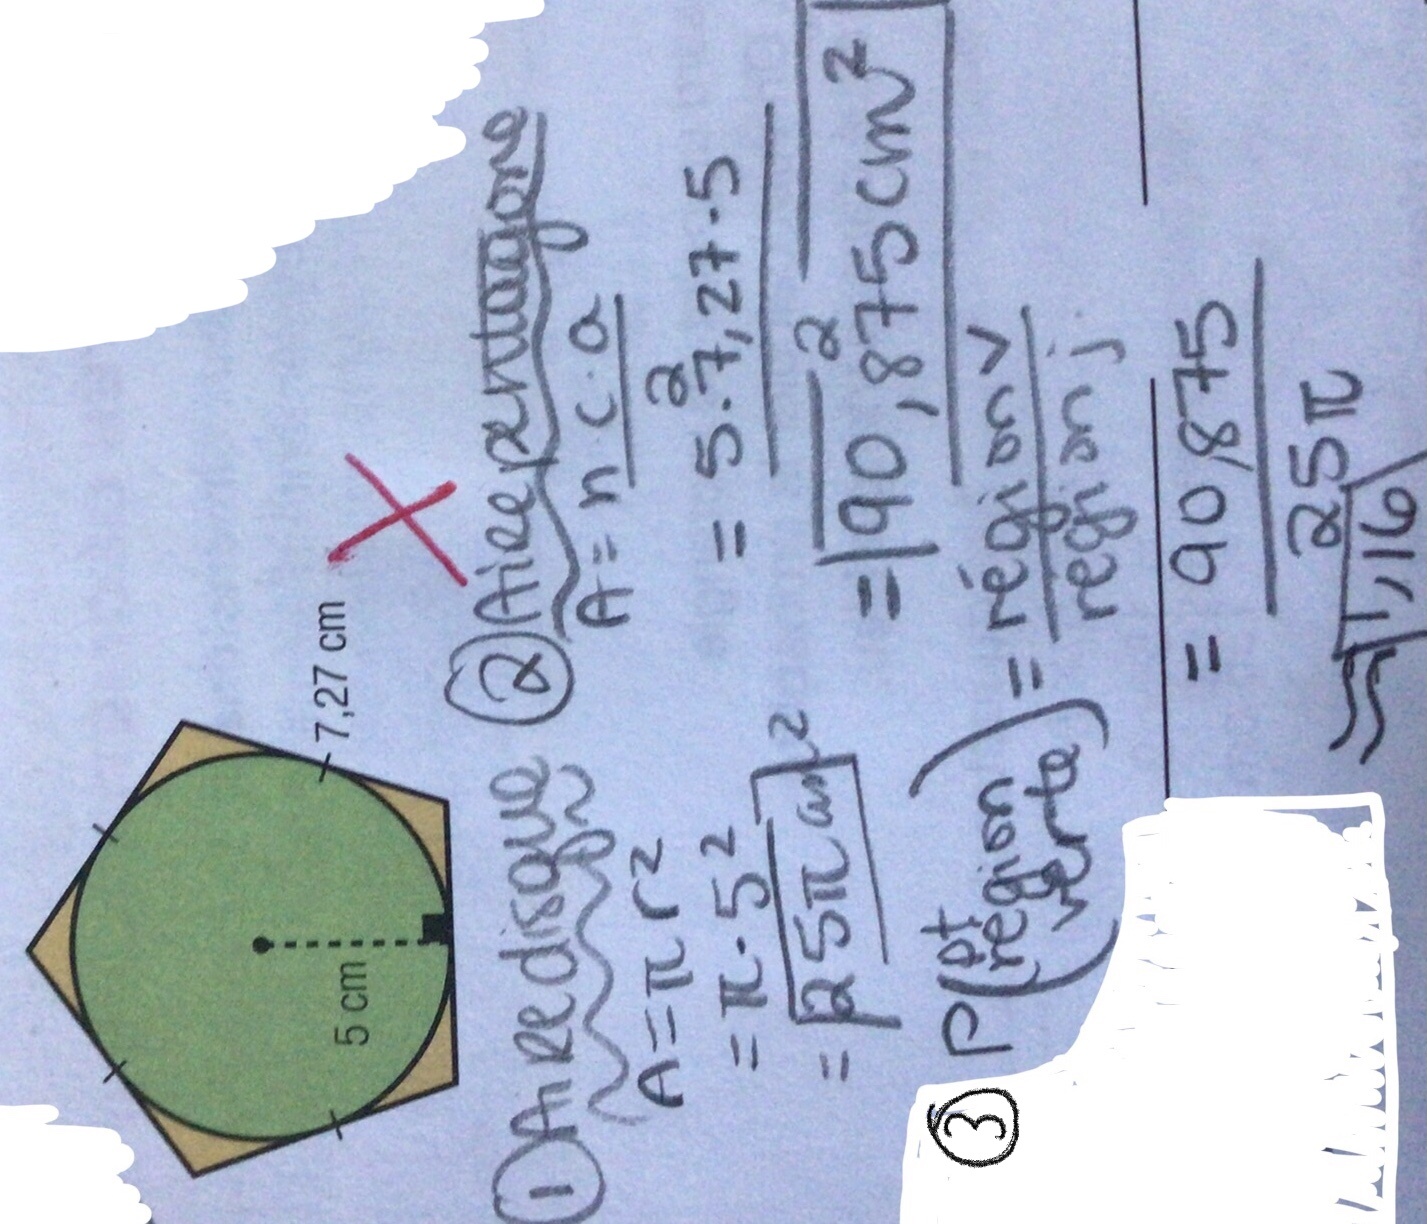 5 cm
7,27 cm
① Aire disque
A = π r²
= π · 5²
= 25π cm²
② Aire pentagone
A = n · c · a
2
= 5 · 7,27 · 5
2
= 90,875 cm²
③ P(pt région verte) = région v
région j
= 90,875
25π
≈ 1,16